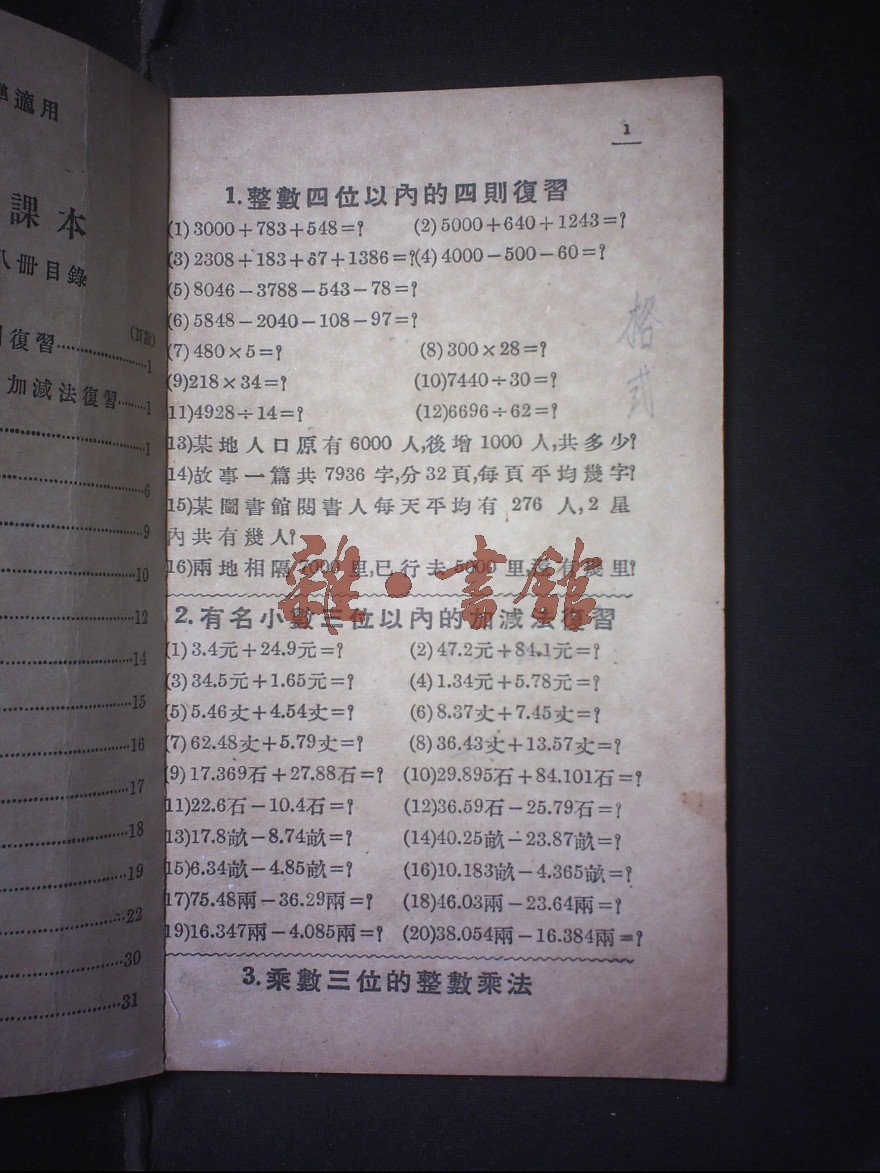 準適用
課本
八冊目錄
(頁數)
則復習……1
加減法復習……1
……1
……6
……9
……10
……12
……14
……15
……16
……17
……18
……19
……22
……30
……31
1
1.整數四位以內的四則復習
(1)3000+783+548=? (2)5000+640+1243=?
(3)2308+183+67+1386=? (4)4000-500-60=?
(5)8046-3788-543-78=?
(6)5848-2040-108-97=?
(7)480×5=? (8)300×28=?
(9)218×34=? (10)7440÷30=?
11)4928÷14=? (12)6696÷62=?
13)某地人口原有6000人,後增1000人,共多少?
14)故事一篇共7936字,分32頁,每頁平均幾字?
15)某圖書館閱書人每天平均有276人,2星
內共有幾人?
16)兩地相隔7000里,已行去5000里,還有幾里?
雜·書館
2.有名小數三位以內的加減法復習
(1)3.4元+24.9元=? (2)47.2元+84.1元=?
(3)34.5元+1.65元=? (4)1.34元+5.78元=?
(5)5.46丈+4.54丈=? (6)8.37丈+7.45丈=?
(7)62.48丈+5.79丈=? (8)36.43丈+13.57丈=?
(9)17.369石+27.88石=? (10)29.895石+84.101石=?
11)22.6石-10.4石=? (12)36.59石-25.79石=?
13)17.8畝-8.74畝=? (14)40.25畝-23.87畝=?
15)6.34畝-4.85畝=? (16)10.183畝-4.365畝=?
17)75.48兩-36.29兩=? (18)46.03兩-23.64兩=?
19)16.347兩-4.085兩=? (20)38.054兩-16.384兩=?
3.乘數三位的整數乘法